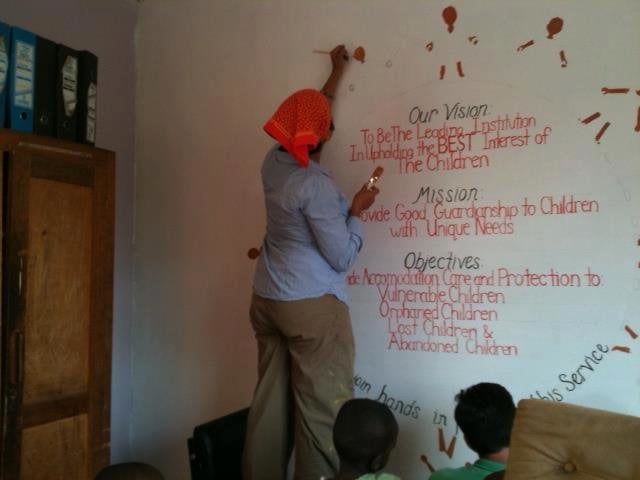 Our Vision:
To Be The Leading Institution
In Upholding the BEST Interest of
The Children
Mission:
Good Guardianship to Children
with Unique Needs
Objectives:
Accomodation Care and Protection to:
Vulnerable Children
Orphaned Children
Lost Children &
Abandoned Children
hands in this Service